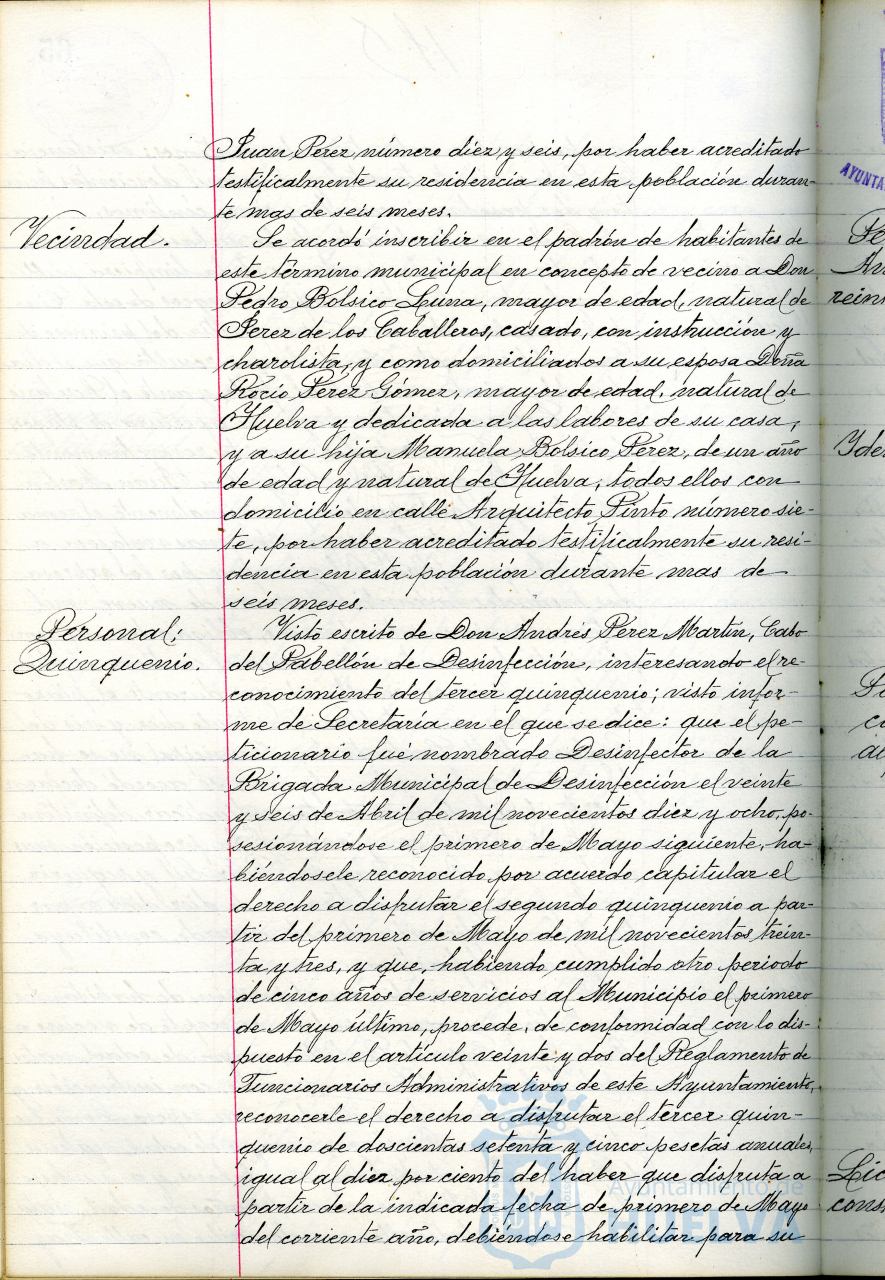 Juan Perez número diez y seis, por haber acreditado
testificalmente su residencia en esta población duran-
te mas de seis meses.
Vecindad.
Se acordó inscribir en el padrón de habitantes de
este término municipal en concepto de vecino a Don
Pedro Bolsico Luna, mayor de edad, natural de
Jerez de los Caballeros, casado, con instrucción y
charolista, y como domiciliados a su esposa Doña
Rocío Pérez Gómez, mayor de edad, natural de
Huelva y dedicada a las labores de su casa,
y a su hija Manuela Bolsico Perez, de un año
de edad y natural de Huelva, todos ellos con
domicilio en calle Arquitecto Pinto número sie-
te, por haber acreditado testificalmente su resi-
dencia en esta población durante mas de
seis meses.
Personal:
Quinquenio.
Visto escrito de Don Andrés Perez Martin, Cabo
del Pabellón de Desinfección, interesando el re-
conocimiento del tercer quinquenio; visto infor-
me de Secretaría en el que se dice: que el pe-
ticionario fué nombrado Desinfector de la
Brigada Municipal de Desinfección el veinte
y seis de Abril de mil novecientos diez y ocho, po-
sesionándose el primero de Mayo siguiente, ha-
biéndosele reconocido por acuerdo capitular el
derecho a disfrutar el segundo quinquenio a par-
tir del primero de Mayo de mil novecientos trein-
ta y tres, y que, habiendo cumplido otro periodo
de cinco años de servicios al Municipio el primero
de Mayo último, procede, de conformidad con lo dis-
puesto en el artículo veinte y dos del Reglamento de
Funcionarios Administrativos de este Ayuntamiento,
reconocerle el derecho a disfrutar el tercer quin-
quenio de doscientas setenta y cinco pesetas anuales,
igual al diez por ciento del haber que disfruta a
partir de la indicada fecha de primero de Mayo
del corriente año, debiéndose habilitar para su
Ayuntamiento de
HUELVA
AYUNTA
reins
Yde
Lic
cons